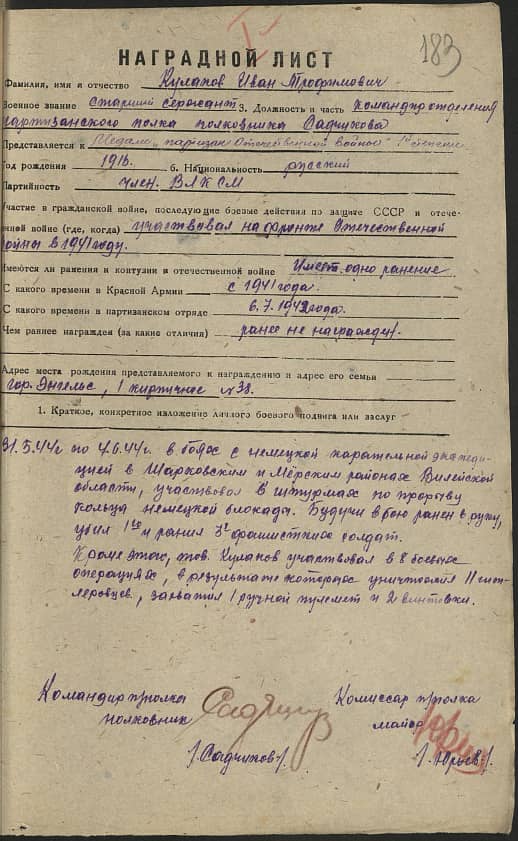 I
183
НАГРАДНОЙ ЛИСТ
Фамилия, имя и отчество Кулапов Иван Трофимович
Военное звание старший сержант 3. Должность и часть командир отделения
партизанского полка полковника Садчикова
Представляется к Медали "партизан Отечественной войны" I степени
Год рождения 1916. 6. Национальность русский
Партийность член ВЛКСМ
Участие в гражданской войне, последующие боевые действия по защите СССР и отече-
енной войне (где, когда) участвовал на фронте Отечественной
войны в 1941 году.
Имеются ли ранения и контузии в отечественной войне Имеет одно ранение
С какого времени в Красной Армии с 1941 года.
С какого времени в партизанском отряде 6.7.1942 года.
Чем раннее награжден (за какие отличия) ранее не награждён.
Адрес места рождения представляемого к награждению и адрес его семьи
гор. Энгельс, 1 кирпичное №38.
1. Краткое, конкретное изложение личного боевого подвига или заслуг
31.5.44г по 4.6.44г. в боях с немецкой карательной экспеди-
цией в Шарковским и Мёрским районах Вилейской
области, участвовал в штурмах по прорыву
кольца немецкой блокады. Будучи в бою ранен в руку,
убил 1го и ранил 3х фашистские солдат.
Кроме этого, тов. Кулапов участвовал в 8 боевых
операциях, в результате которых уничтожил 11 гит-
леровцев, захватил 1 ручной пулемет и 2 винтовки.
Командир п/полка Комиссар п/полка
полковник майор
/Садчиков/ /Юрьев/.